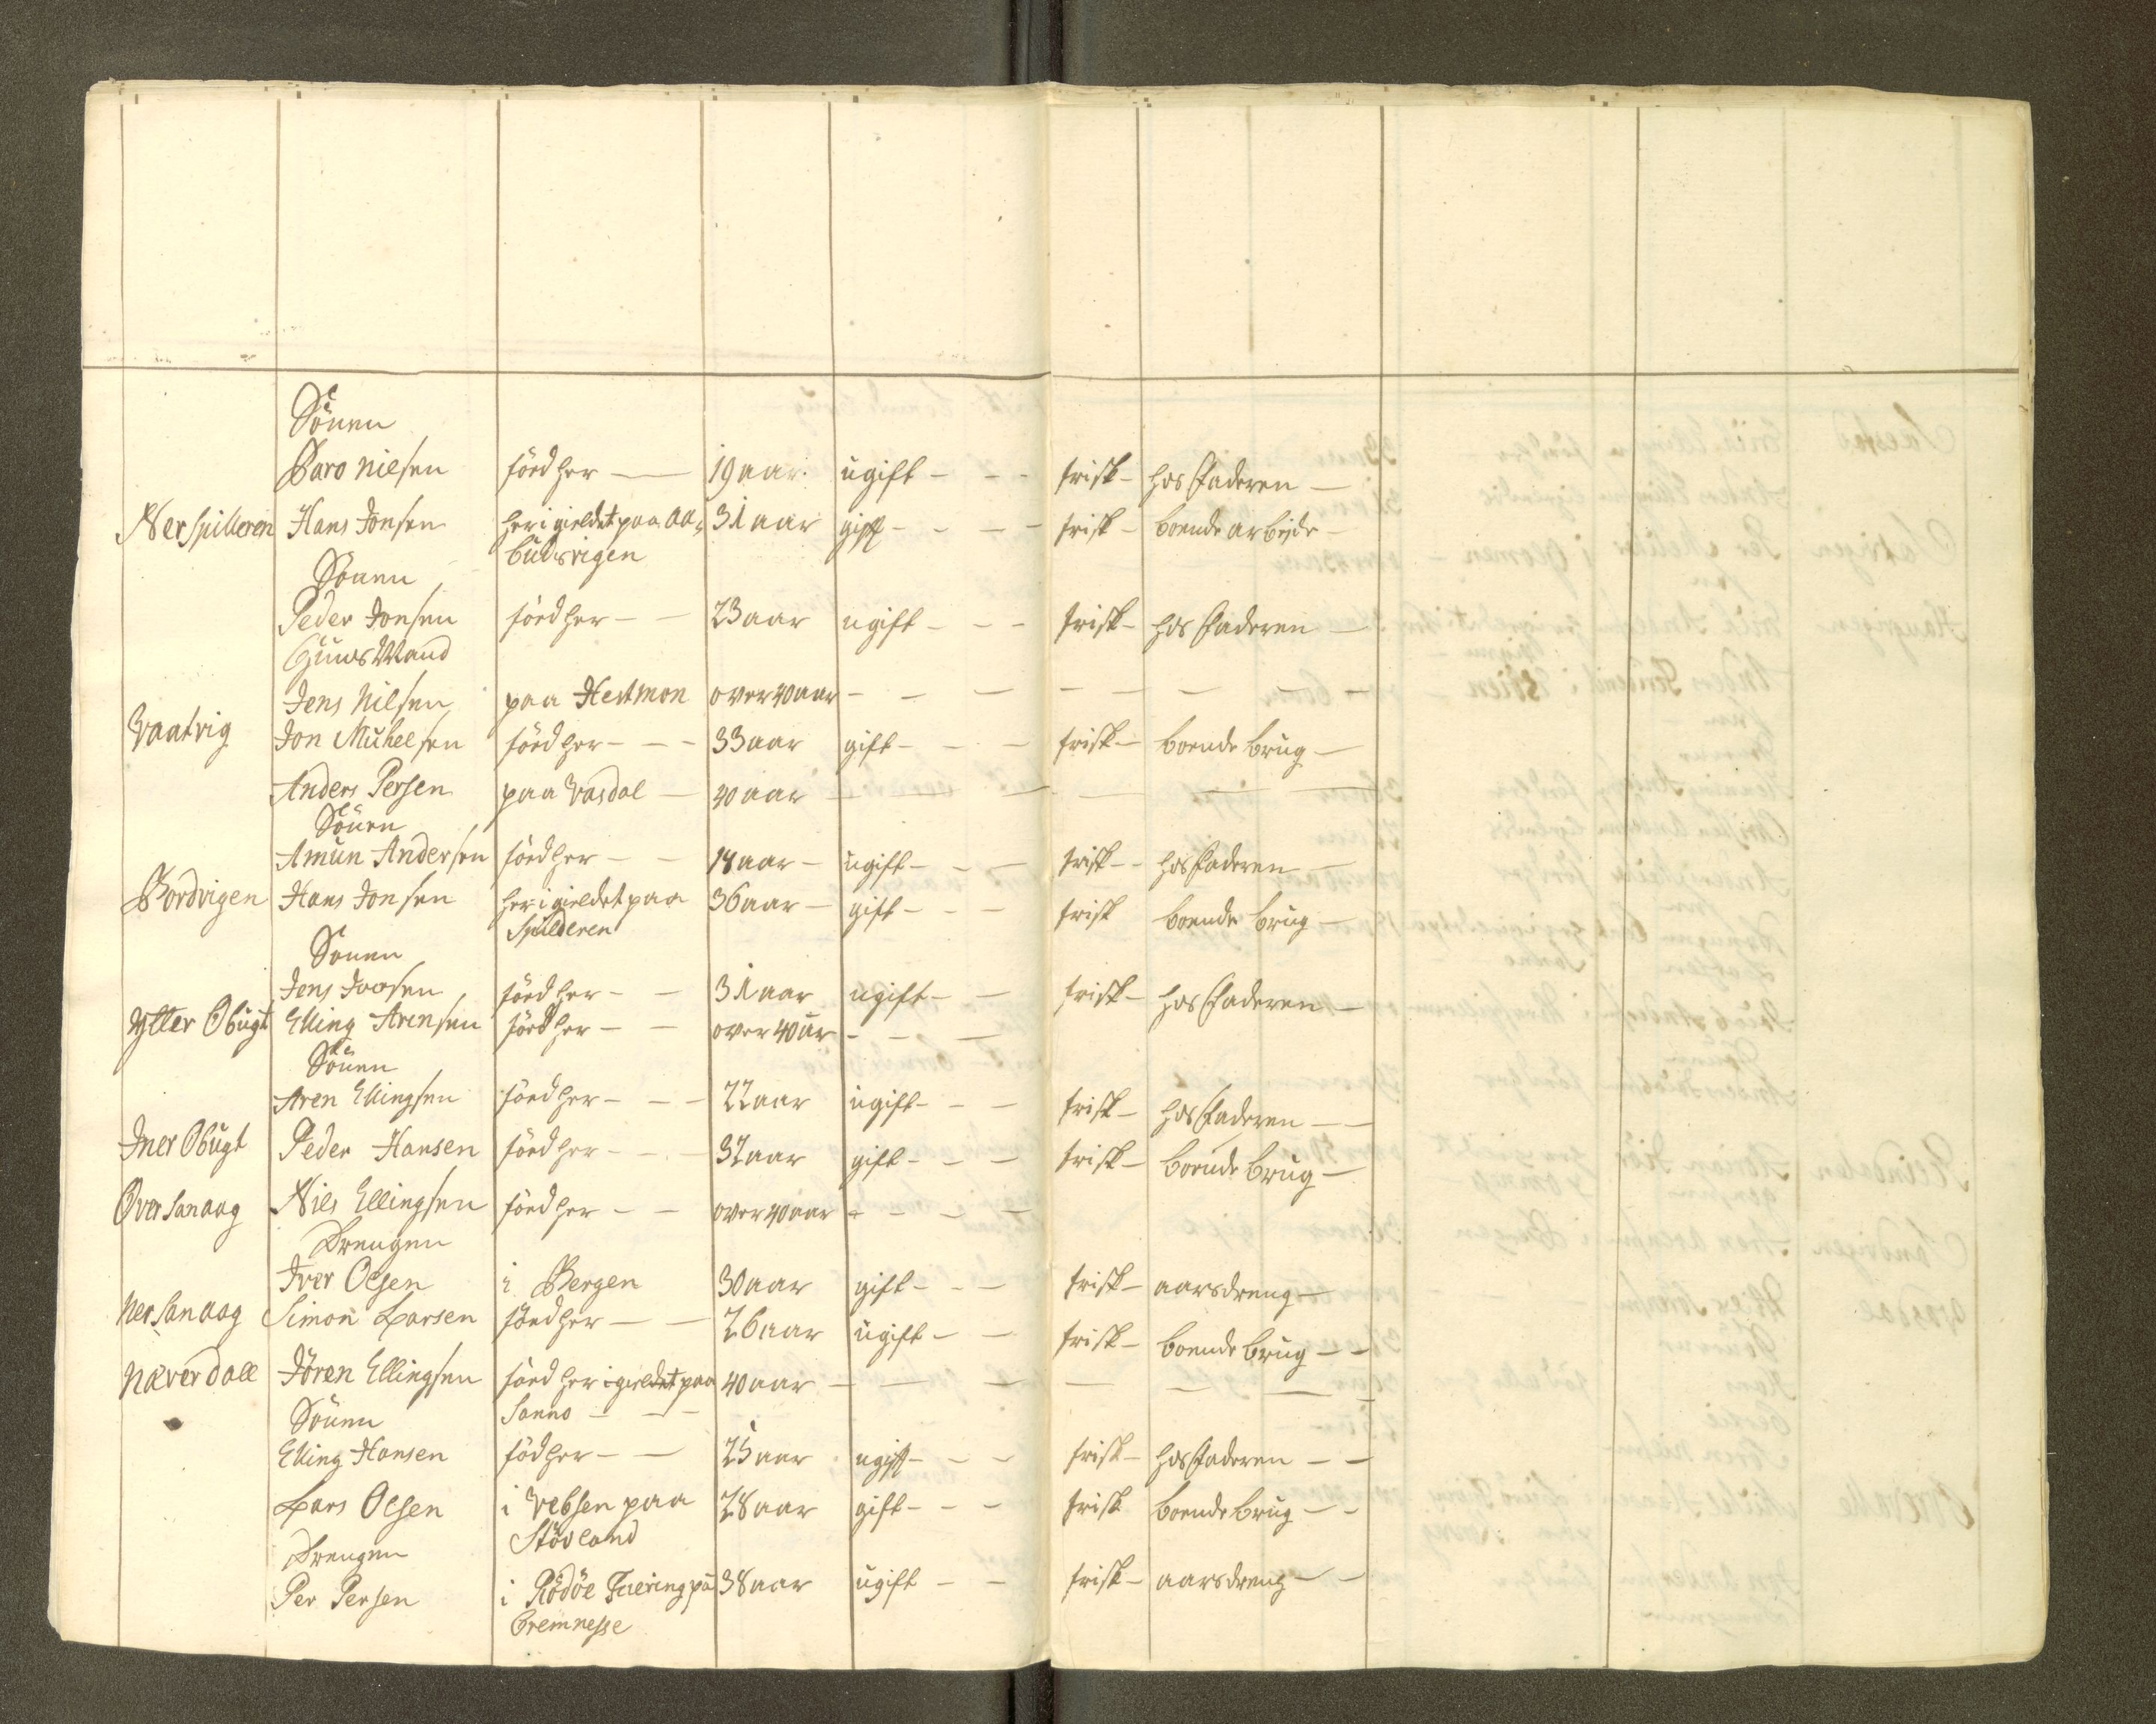 Sönen
Baro Nilsen föed her — 19 aar ugift - - - frisk - hos Faderen —
Ner Spilleren Hans Jonsen her i gieldet paa Aa- 31 aar gift - - - - frisk - boende arbeide -
budsvigen
Sönen
Peder Jonsen föed her - - 23 aar ugift - - - frisk - hos Faderen —
Huus Mand
Jens Nilsen paa Hestmon over 40 aar - - — - — — - —
Vaatvig Jon Muhelsen föed her - - - 33 aar gift - - - frisk - boende brug —
Anders Persen paa Vasdal — 40 aar — — — — — —
Sönen
Amun Andersen föed her - - 14 aar - ugift - - - frisk - - hos Faderen —
Bordvigen Hans Jonsen her i gieldet paa 36 aar — gift - - - frisk boende brug —
Spilderen
Sönen
Jens Joosen föed her - - 31 aar ugift - - frisk - hos Faderen —
Ytter Obugt Elling Arensen föed her - - over 40 aar - - —
Sönen
Aren Ellingsen föed her - - - 22 aar ugift - - - frisk - hos Faderen — —
Iner Obugt Peder Hansen föed her - - - 32 aar gift - - - frisk - boende brug —
Over Sanaag Nils Ellingsen föed her - - over 40 aar - - - —
Drengen
Iver Olsen i Bergen 30 aar gift - - - frisk - aarsdreng —
Ner Sanaag Simon Larsen föed her - — 26 aar ugift - - frisk - boende brug - -
Næverdall Jören Ellingsen föed her i gieldet paa 40 aar - — — — — — —
Sönen Sanno - - -
Elling Hansen föd her - - 25 aar ugift - - - frisk - hos Faderen - -
Lars Olsen i Vebsen paa 28 aar gift - - - frisk boende brug - -
Stövland
Drengen
Per Persen i Rödöe Fiering på 38 aar ugift - - frisk - aarsdreng - -
Gremnesse